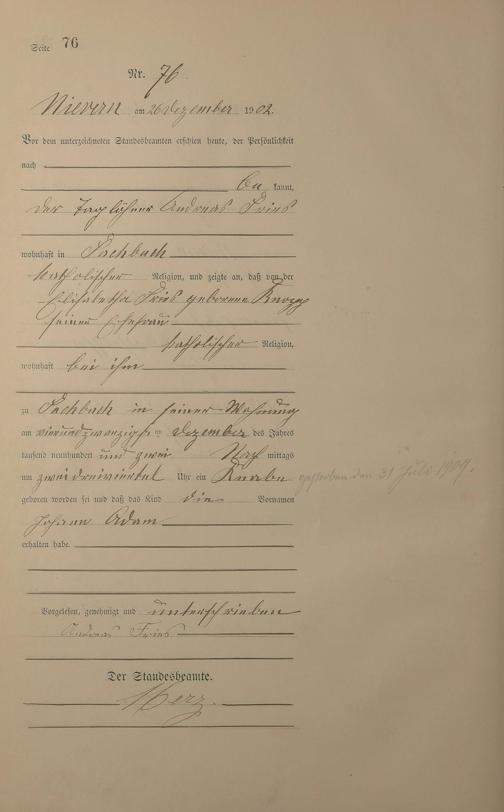 Seite 76
Nr. 76
Nievern am 26 Dezember 1902.
Vor dem unterzeichneten Standesbeamten erschien heute, der Persönlichkeit
nach
be kannt,
der Taglöhner Andreas Fries
wohnhaft in Fachbach
katholischer Religion, und zeigte an, daß von der
Elisabetha Fries geborene
seiner Ehefrau
katholischer Religion,
wohnhaft bei ihm
zu Fachbach in seiner Wohnung
am vierundzwanzigsten Dezember des Jahres
tausend neunhundert und zwei Nach mittags
um zweidreiviertel Uhr ein Knabe
gestorben den 31 Juli 1909.
geboren worden sei und daß das Kind die Vornamen
Johann Adam
erhalten habe.
Vorgelesen, genehmigt und unterschrieben
Andreas Fries
Der Standesbeamte.
Merz